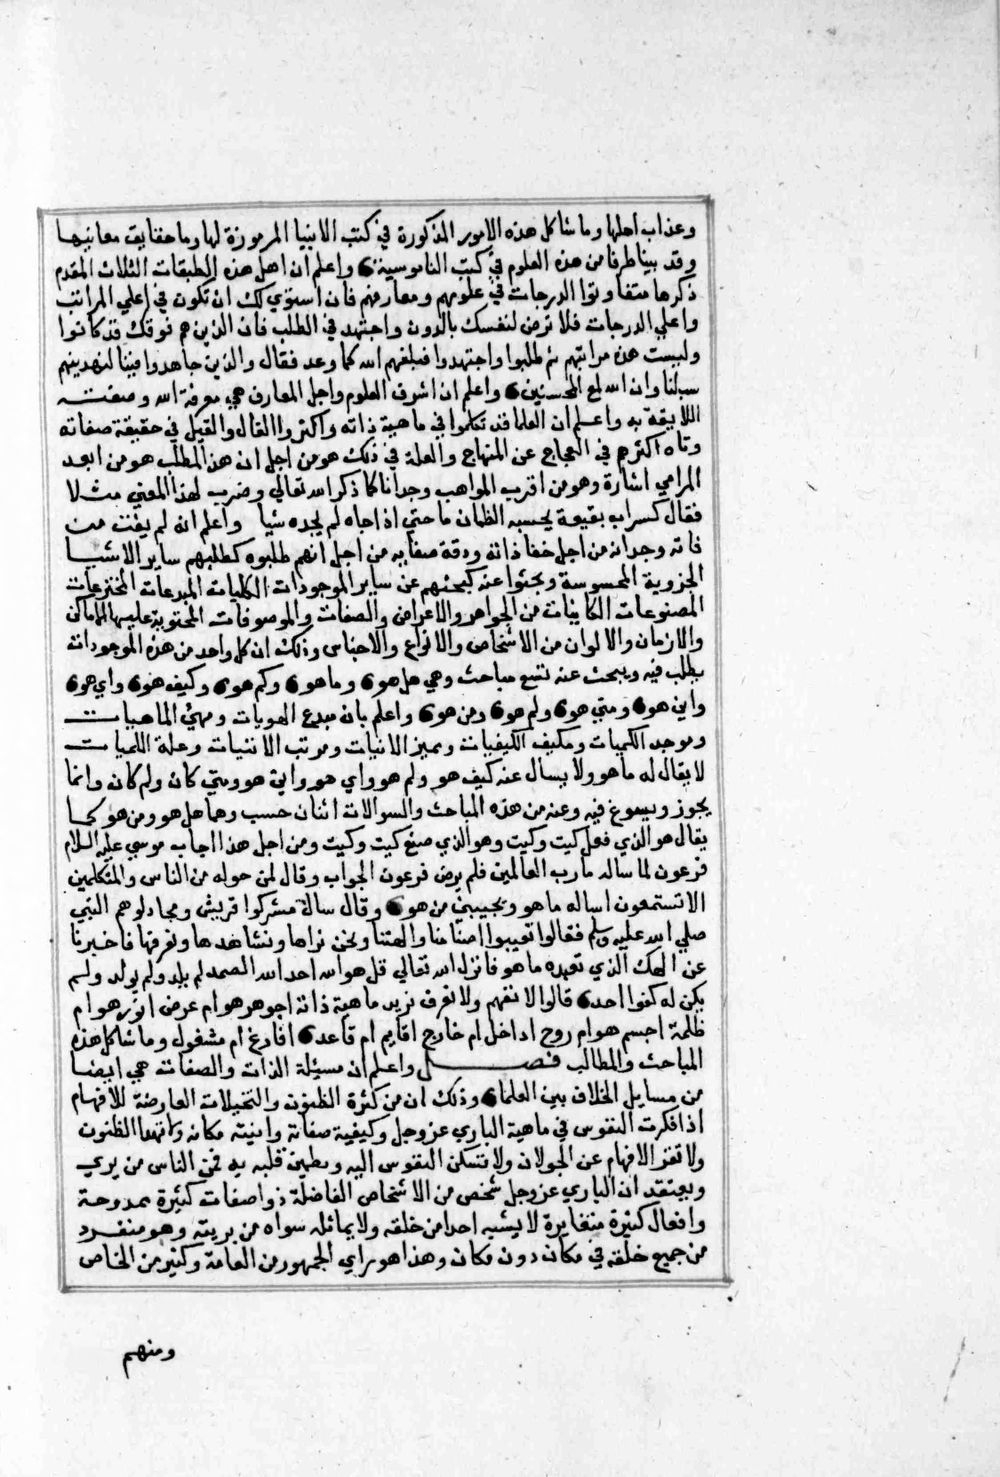 وعذاب اهلها وما شاكل هذه الامور المذكورة في كتب الانبيا المرموزة لها وما حقايق معانيها
وقد بينا طرفا من هذه العلوم في كتب الناموسية واعلم ان اهل هذه الطبقات الثلاث المقدم
ذكرها متفاوتوا الدرجات في علومهم ومعارفهم فان استوي لك ان تكون في اعلي المراتب
واعلي الدرجات فلا ترض لنفسك بالدون واجتهد في الطلب فان الذين هم فوقك قد كانوا
وليست هذه مراتبهم ثم طلبوا واجتهدوا فبلغهم الله كما وعد فقال والذين جاهدوا فينا لنهدينهم
سبلنا وان الله لمع المحسنين واعلم ان اشرف العلوم واجل المعارف هي معرفة الله وصفته
اللايقة به واعلم ان العلما قد تكلموا في ماهية ذاته واكثروا القال والقيل في حقيقة صفاته
وتاه اكثرهم في العجاج عن المنهاج والعلة في ذلك هو من اجل ان هذا المطلب هو من ابعد
المرامي اشارة وهو من اقرب المواهب وجدانا كما ذكر الله تعالي وضرب لهذا المعني مثلا
فقال كسراب بقيعة يحسبه الظمان ما حتي اذا جاه لم يجده شيا واعلم انه لم يفت من
فاته وجدانه من اجل خفا ذاته ودقة صفاته من اجل انهم طلبوه كطلبهم ساير الاشيا
الجزوية المحسوسة وبحثوا عنه كبحثهم عن ساير الموجودات الكليات المبدعات المخترعات
المصنوعات الكاينات من الجواهر والاعراض والصفات والموصوفات المحتوية عليها الاماكن
والازمان والالوان من الاشخاص والانواع والاجناس وذلك ان كل واحد من هذه الموجودات
يطلب فيه ويبحث عنه تسع مباحث وهي هل هو وما هو وكم هو وكيف هو واي هو
واين هو ومتي هو ولم هو ومن هو واعلم بان مبدع الهويات ومهيئ الماهيات
وموجد الكميات ومكيف الكيفيات ومميز الانيات ومرتب الاينيات وعلة اللميات
لا يقال له ما هو ولا يسال عنه كيف هو ولم هو واي هو واين هو ومتي كان ولم كان وانما
يجوز ويسوغ فيه وعنه من هذه المباحث والسوالات اثنان حسب وهما هل هو ومن هو كما
يقال هو الذي فعل كيت وكيت وهو الذي صنع كيت وكيت ومن اجل هذا اجاب موسي عليه السلام
فرعون لما ساله ما رب العالمين فلم يرض فرعون الجواب وقال لمن حوله من الناس والمتكلمين
الا تستمعون اساله ما هو ويجيبني من هو وقال سال مشركوا قريش ومجادلوهم النبي
صلي الله عليه وسلم فقالوا تعيبوا اصنامنا والهتنا ونحن نراها ونشاهدها ونعرفها فاخبرنا
عن الهك الذي تعبده ما هو فانزل الله تعالي قل هو الله احد الله الصمد لم يلد ولم يولد ولم
يكن له كفوا احد قالوا لا نفهم ولا نعرف نريد ماهية ذاته اجوهر هو ام عرض انور هو ام
ظلمة اجسم هو ام روح اداخل ام خارج اقايم ام قاعد افارغ ام مشغول وما شاكل هذه
المباحث والمطالب فصل واعلم ان مسيلة الذات والصفات هي ايضا
من مسايل الخلاف بين العلما وذلك ان من كثرة الظنون والتخيلات العارضة للافهام
اذا فكرت النفوس في ماهية الباري عز وجل وكيفية صفاته واينيته مكانه ظنون
ولا تقر الافهام عن الجولان ولا تسكن النفوس اليه ويطمين قلبه به فمن الناس من يري
ويعتقد ان الباري عز وجل شخص من الاشخاص الفاضلة ذو اصفات كثيرة ممدوحة
وافعال كثيرة متغايرة لا يشبه احدا من خلقه ولا يماثله سواه من بريته وهو منفرد
من جميع خلقه في مكان دون مكان وهذا هو راي الجمهور من العامة وكثير من الخاص
ومنهم